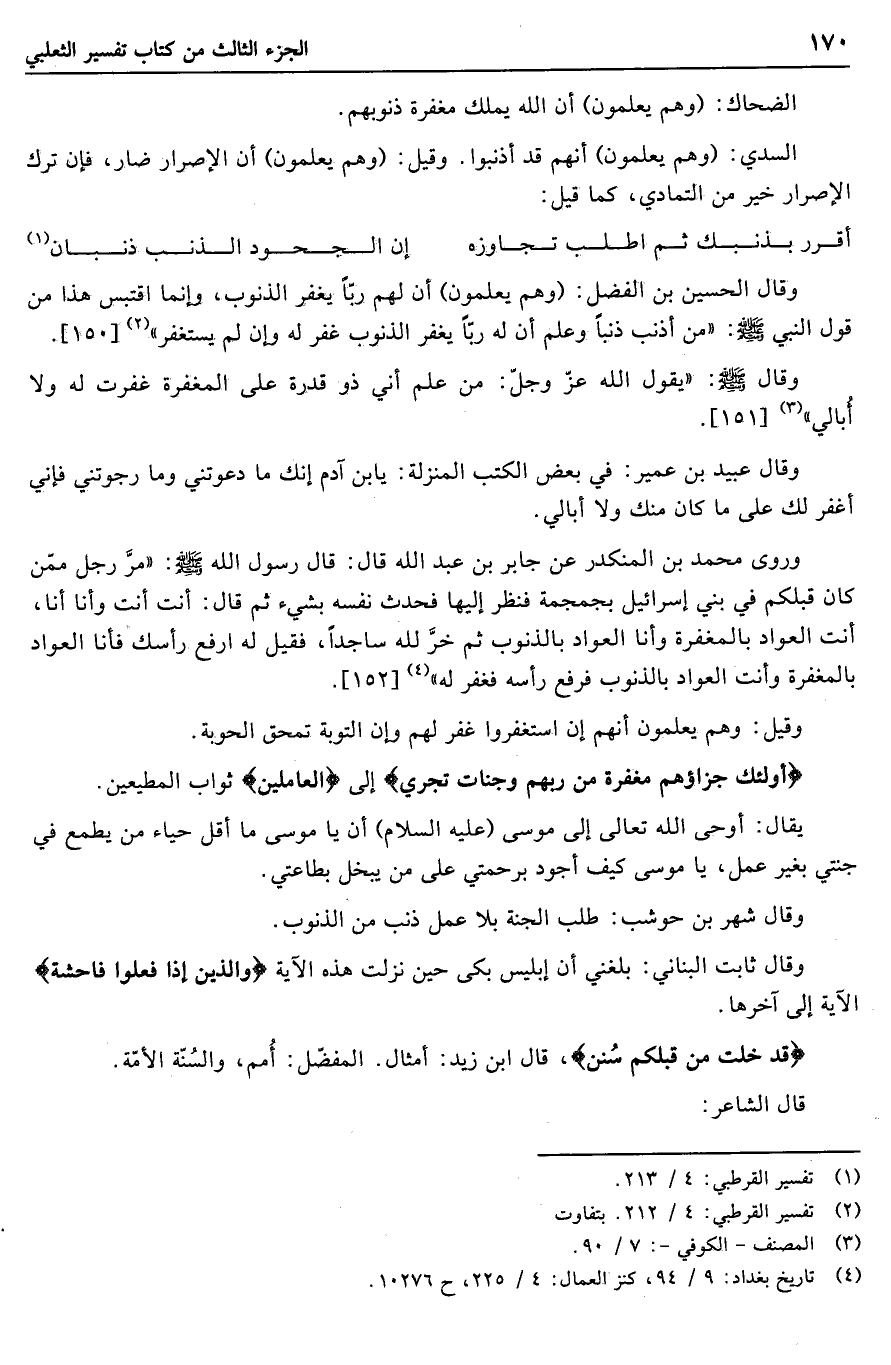 ١٧٠ الجزء الثالث من كتاب تفسير الثعلبي
الضحاك: (وهم يعلمون) أن الله يملك مغفرة ذنوبهم.
السدي: (وهم يعلمون) أنهم قد أذنبوا. وقيل: (وهم يعلمون) أن الإصرار ضار، فإن ترك
الإصرار خير من التمادي، كما قيل:
أقرر بذنبك ثم اطلب تجاوزه إن الجحود الذنب ذنبان(١)
وقال الحسين بن الفضل: (وهم يعلمون) أن لهم ربّاً يغفر الذنوب، وإنما اقتبس هذا من
قول النبي ﷺ: «من أذنب ذنباً وعلم أن له ربّاً يغفر الذنوب غفر له وإن لم يستغفر»(٢) [١٥٠].
وقال ﷺ: «يقول الله عزّ وجلّ: من علم أني ذو قدرة على المغفرة غفرت له ولا
أُبالي»(٣) [١٥١].
وقال عبيد بن عمير: في بعض الكتب المنزلة: يابن آدم إنك ما دعوتني وما رجوتني فإني
أغفر لك على ما كان منك ولا أبالي.
وروى محمد بن المنكدر عن جابر بن عبد الله قال: قال رسول الله ﷺ: «مرَّ رجل ممّن
كان قبلكم في بني إسرائيل بجمجمة فنظر إليها فحدث نفسه بشيء ثم قال: أنت أنت وأنا أنا،
أنت العواد بالمغفرة وأنا العواد بالذنوب ثم خرَّ لله ساجداً، فقيل له ارفع رأسك فأنا العواد
بالمغفرة وأنت العواد بالذنوب فرفع رأسه فغفر له»(٤) [١٥٢].
وقيل: وهم يعلمون أنهم إن استغفروا غفر لهم وإن التوبة تمحق الحوبة.
﴿أولئك جزاؤهم مغفرة من ربهم وجنات تجري﴾ إلى ﴿العاملين﴾ ثواب المطيعين.
يقال: أوحى الله تعالى إلى موسى (عليه السلام) أن يا موسى ما أقل حياء من يطمع في
جنتي بغير عمل، يا موسى كيف أجود برحمتي على من يبخل بطاعتي.
وقال شهر بن حوشب: طلب الجنة بلا عمل ذنب من الذنوب.
وقال ثابت البناني: بلغني أن إبليس بكى حين نزلت هذه الآية ﴿والذين إذا فعلوا فاحشة﴾
الآية إلى آخرها.
﴿قد خلت من قبلكم سُنن﴾، قال ابن زيد: أمثال. المفضّل: أُمم، والسُنّة الأمّة.
قال الشاعر:
(١) تفسير القرطبي: ٤ / ٢١٣.
(٢) تفسير القرطبي: ٤ / ٢١٢. بتفاوت
(٣) المصنف - الكوفي -: ٧ / ٩٠.
(٤) تاريخ بغداد: ٩ / ٩٤، كنز العمال: ٤ / ٢٢٥، ح ١٠٢٧٦.